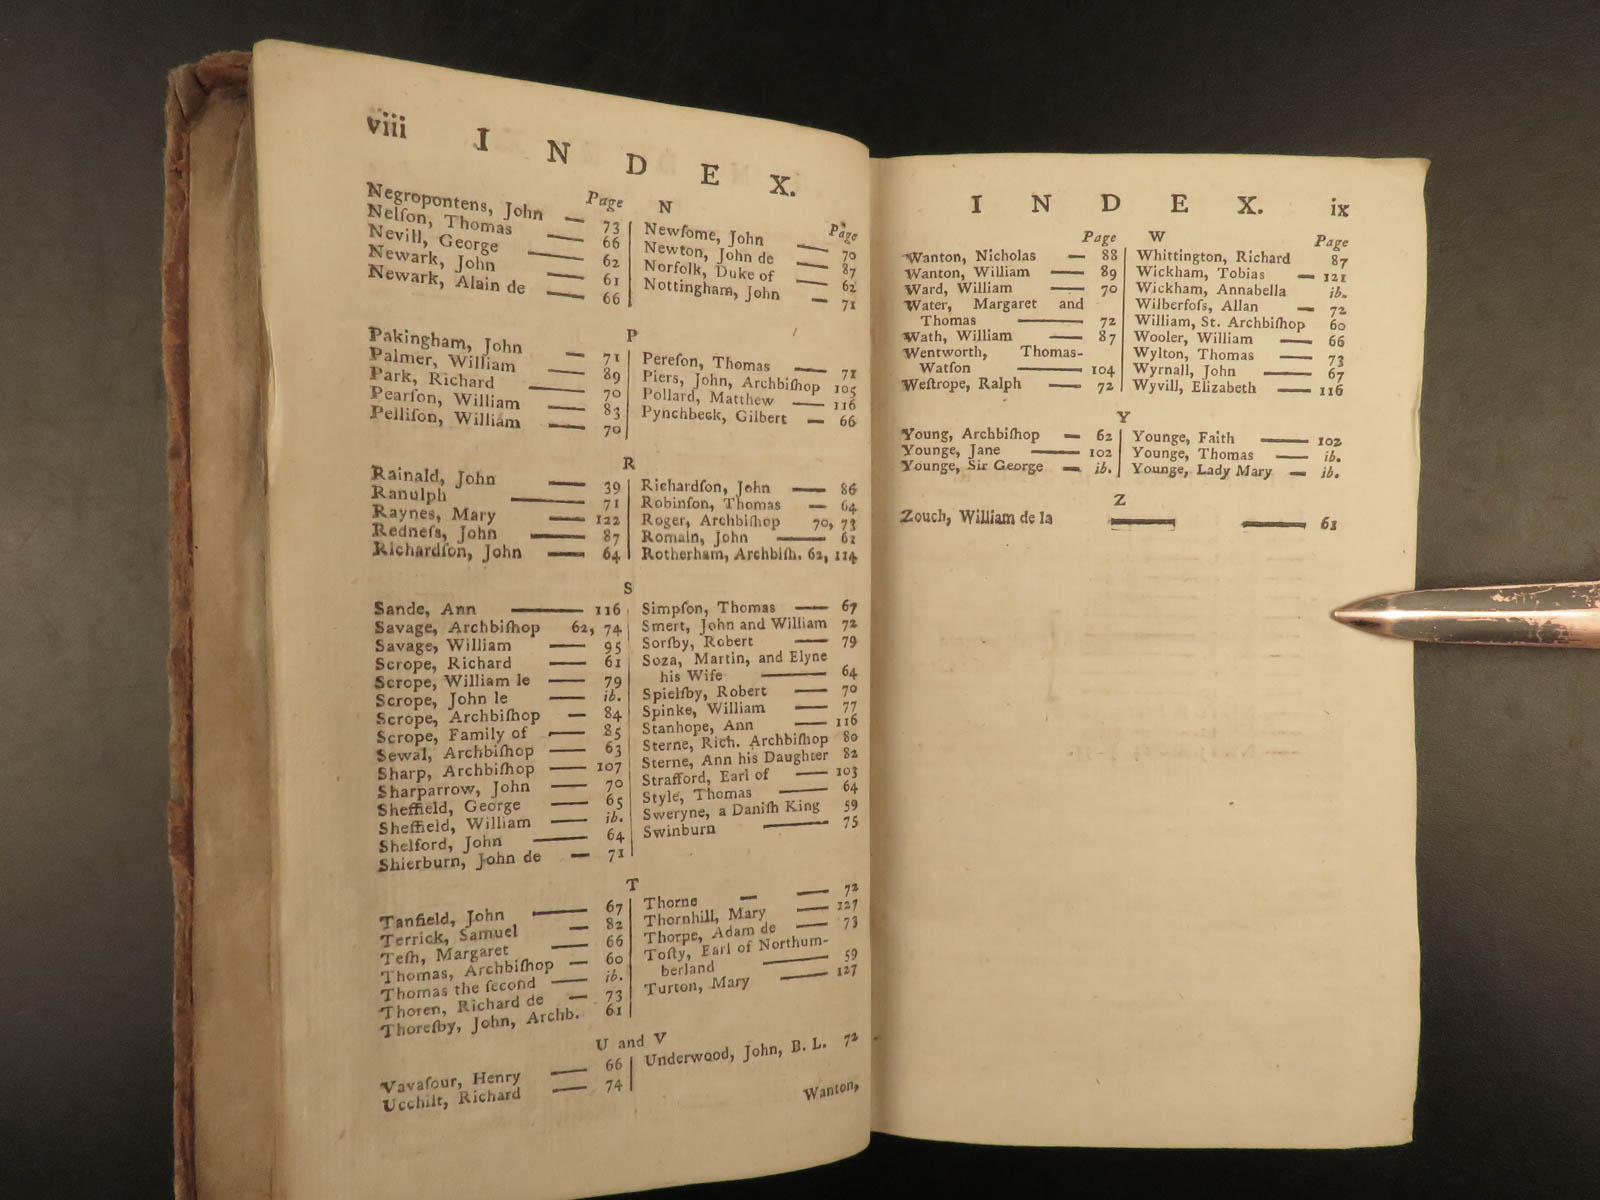 viii
I N D E X.
N
Page
Negropontens, John — 73
Nelſon, Thomas — 66
Nevill, George — 62
Newark, John — 61
Newark, Alain de — 66
Page
Newſome, John — 70
Newton, John de — 87
Norfolk, Duke of — 62
Nottingham, John — 71
P
Pakingham, John — 71
Palmer, William — 89
Park, Richard — 70
Pearſon, William — 83
Pelliſon, William — 70
Pereſon, Thomas — 71
Piers, John, Archbiſhop 105
Pollard, Matthew — 116
Pynchbeck, Gilbert — 66
R
Rainald, John — 39
Ranulph — 71
Raynes, Mary — 122
Redneſs, John — 87
Richardſon, John — 64
Richardſon, John — 86
Robinſon, Thomas — 64
Roger, Archbiſhop 70, 73
Romain, John — 61
Rotherham, Archbiſh. 62, 114
S
Sande, Ann — 116
Savage, Archbiſhop 62, 74
Savage, William — 95
Scrope, Richard — 61
Scrope, William le — 79
Scrope, John le — ib.
Scrope, Archbiſhop — 84
Scrope, Family of — 85
Sewal, Archbiſhop — 63
Sharp, Archbiſhop — 107
Sharparrow, John — 70
Sheffield, George — 65
Sheffield, William — ib.
Shelford, John — 64
Shierburn, John de — 71
Simpſon, Thomas — 67
Smert, John and William 72
Sorſby, Robert — 79
Soza, Martin, and Elyne
his Wife — 64
Spielſby, Robert — 70
Spinke, William — 77
Stanhope, Ann — 116
Sterne, Rich. Archbiſhop 80
Sterne, Ann his Daughter 82
Strafford, Earl of — 103
Style, Thomas — 64
Sweryne, a Daniſh King 59
Swinburn — 75
T
Tanfield, John — 67
Terrick, Samuel — 82
Teſh, Margaret — 66
Thomas, Archbiſhop — 60
Thomas the ſecond — ib.
Thoren, Richard de — 73
Thoreſby, John, Archb. 61
Thorne — — 72
Thornhill, Mary — 127
Thorpe, Adam de — 73
Toſty, Earl of Northum-
berland — 59
Turton, Mary — 127
U and V
Vavaſour, Henry — 66
Ucchilt, Richard — 74
Underwood, John, B. L. 72
Wanton,
I N D E X. ix
W
Page
Wanton, Nicholas — 88
Wanton, William — 89
Ward, William — 70
Water, Margaret and
Thomas — 72
Wath, William — 87
Wentworth, Thomas-
Watſon — 104
Weſtrope, Ralph — 72
Page
Whittington, Richard 87
Wickham, Tobias — 121
Wickham, Annabella ib.
Wilberfoſs, Allan — 72
William, St. Archbiſhop 60
Wooler, William — 66
Wylton, Thomas — 73
Wyrnall, John — 67
Wyvill, Elizabeth — 116
Y
Young, Archbiſhop — 62
Younge, Jane — 102
Younge, Sir George — ib.
Younge, Faith — 102
Younge, Thomas — ib.
Younge, Lady Mary — ib.
Z
Zouch, William de la — — 61